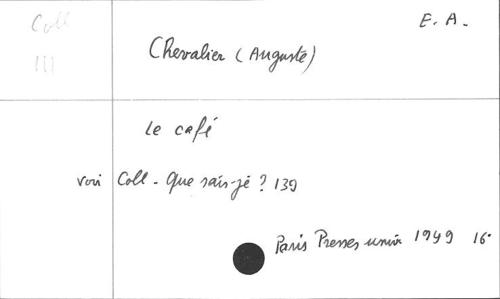 Coll
III
E. A.
Chevalier (Auguste)
Le café
voir Coll. Que sais-je ? 139
Paris Presses univ. 1949 16°